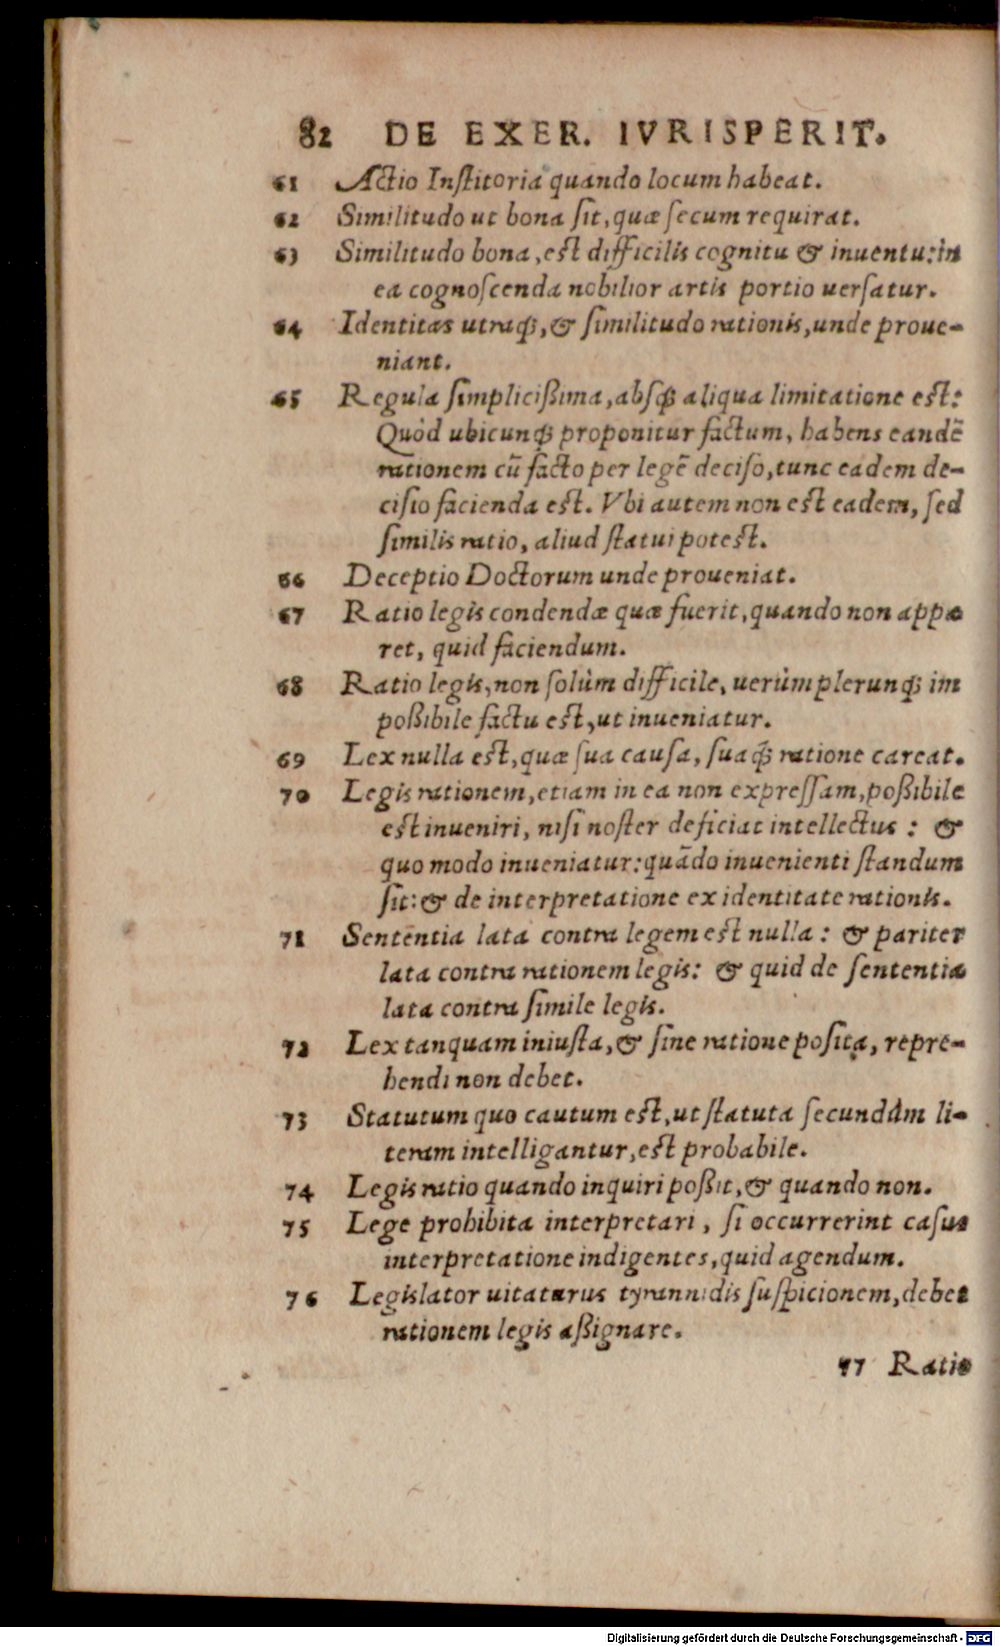 82 DE EXER. IVRISPERIT.
61 Actio Institoria quando locum habeat.
62 Similitudo ut bona sit, quæ secum requirat.
63 Similitudo bona, est difficilis cognitu & inuentu: in
ea cognoscenda nobilior artis portio uersatur.
64 Identitas utraq́;, & similitudo rationis, unde proue-
niant.
65 Regula simplicißima, absq́; aliqua limitatione est:
Quòd ubicunq́; proponitur factum, habens eandē
rationem cū facto per legē deciso, tunc eadem de-
cisio facienda est. Vbi autem non est eadem, sed
similis ratio, aliud statui potest.
66 Deceptio Doctorum unde proueniat.
67 Ratio legis condendæ quæ fuerit, quando non appa
ret, quid faciendum.
68 Ratio legis, non solùm difficile, uerùm plerunq́; im
poßibile factu est, ut inueniatur.
69 Lex nulla est, quæ sua causa, suaq́; ratione careat.
70 Legis rationem, etiam in ea non expressam, poßibile
est inueniri, nisi noster deficiat intellectus : &
quo modo inueniatur: quādo inuenienti standum
sit: & de interpretatione ex identitate rationis.
71 Sententia lata contra legem est nulla : & pariter
lata contra rationem legis: & quid de sententia
lata contra simile legis.
72 Lex tanquam iniusta, & sine ratione posita, repre-
hendi non debet.
73 Statutum quo cautum est, ut statuta secundùm li-
teram intelligantur, est probabile.
74 Legis ratio quando inquiri poßit, & quando non.
75 Lege prohibita interpretari, si occurrerint casus
interpretatione indigentes, quid agendum.
76 Legislator uitaturus tyrannidis suspicionem, debet
rationem legis aßignare.
77 Ratio
Digitalisierung gefördert durch die Deutsche Forschungsgemeinschaft - DFG